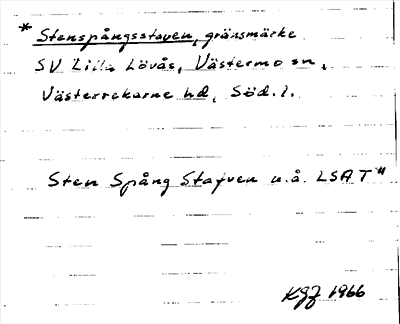 * Stenspångsstaven, gränsmärke
SV Lilla Lövås, Västermo sn,
Västerrekarne hd, Söd. l.
Sten Spång Stafven u.å. LSA T"
KGJ 1966